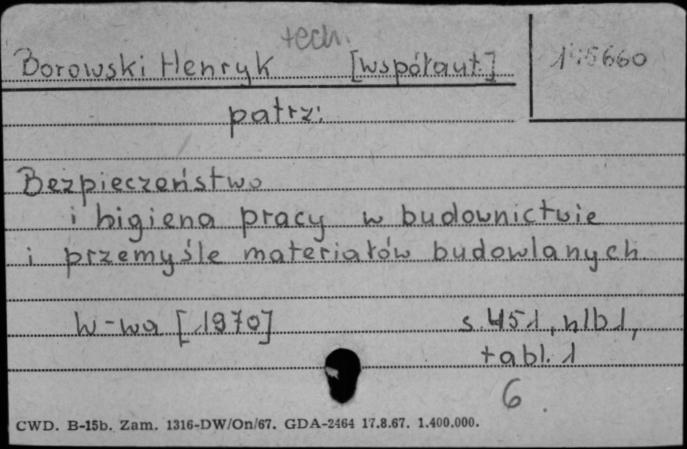 tech.
Borowski Henryk [współaut.]
175660
patrz:
Bezpieczeństwo
i higiena pracy w budownictwie
i przemyśle materiałów budowlanych
W-wa [1970] s. 451, nlb 1,
tabl. 1
6
CWD. B-15b. Zam. 1316-DW/On/67. GDA-2464 17.8.67. 1.400.000.